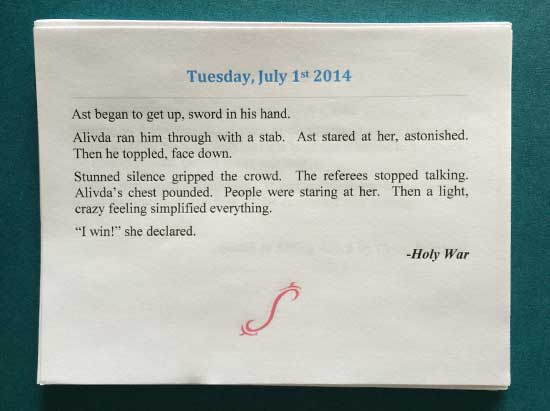 Tuesday, July 1st 2014
Ast began to get up, sword in his hand.
Alivda ran him through with a stab. Ast stared at her, astonished.
Then he toppled, face down.
Stunned silence gripped the crowd. The referees stopped talking.
Alivda's chest pounded. People were staring at her. Then a light,
crazy feeling simplified everything.
“I win!” she declared.
-Holy War